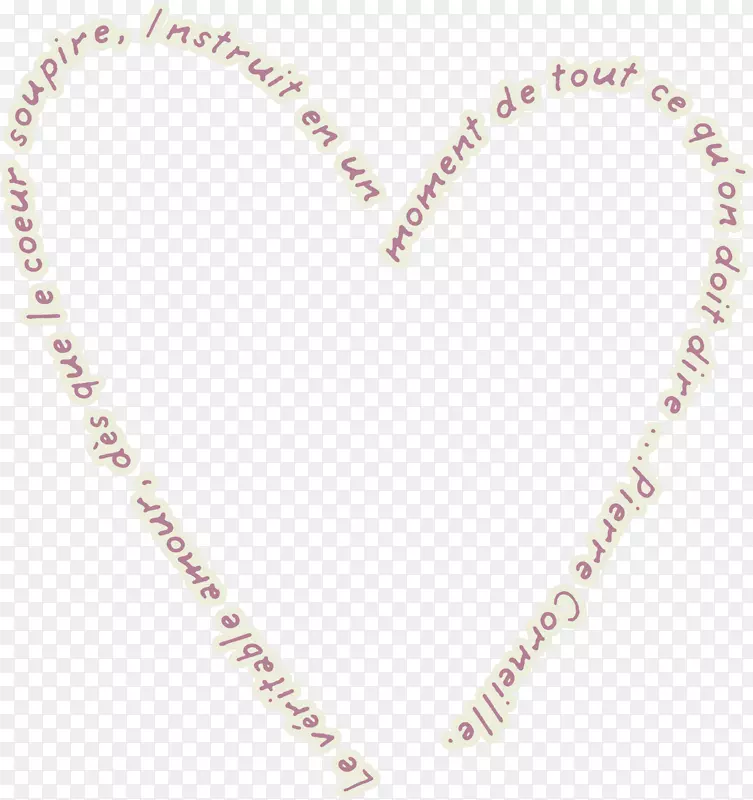 Le véritable amour, dès que le coeur soupire, Instruit en un moment de tout ce qu'on doit dire ...Pierre Corneille.